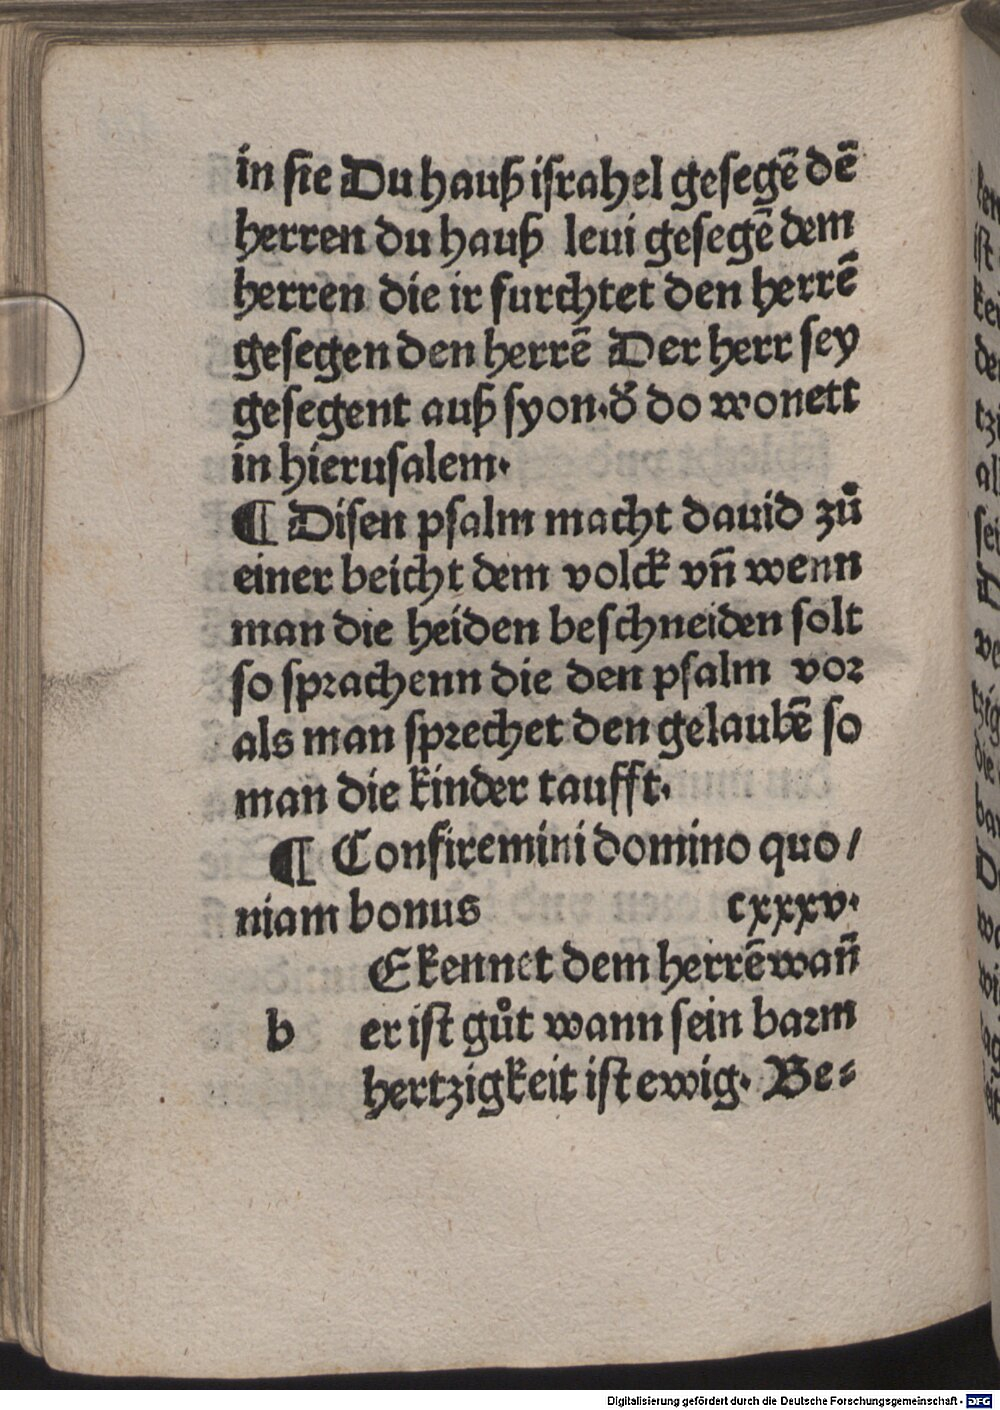 in sie Du hauß israhel gesegē dē
herren du hauß leui gesegē dem
herren die ir furchtet den herrē
gesegen den herrē Der herr sey
gesegent auß syon·d̕ do wonett
in hierusalem·
¶ Disen psalm macht dauid zů
einer beicht dem volck vn̄ wenn
man die heiden beschneiden solt
so sprachenn die den psalm vor
als man sprechet den gelaubē so
man die kinder taufft·
¶ Confiremini domino quo/
niam bonus cxxxv·
Ekennet dem herrē wan̄
b er ist gůt wann sein barm
hertzigkeit ist ewig· Be⸗
Digitalisierung gefördert durch die Deutsche Forschungsgemeinschaft - DFG